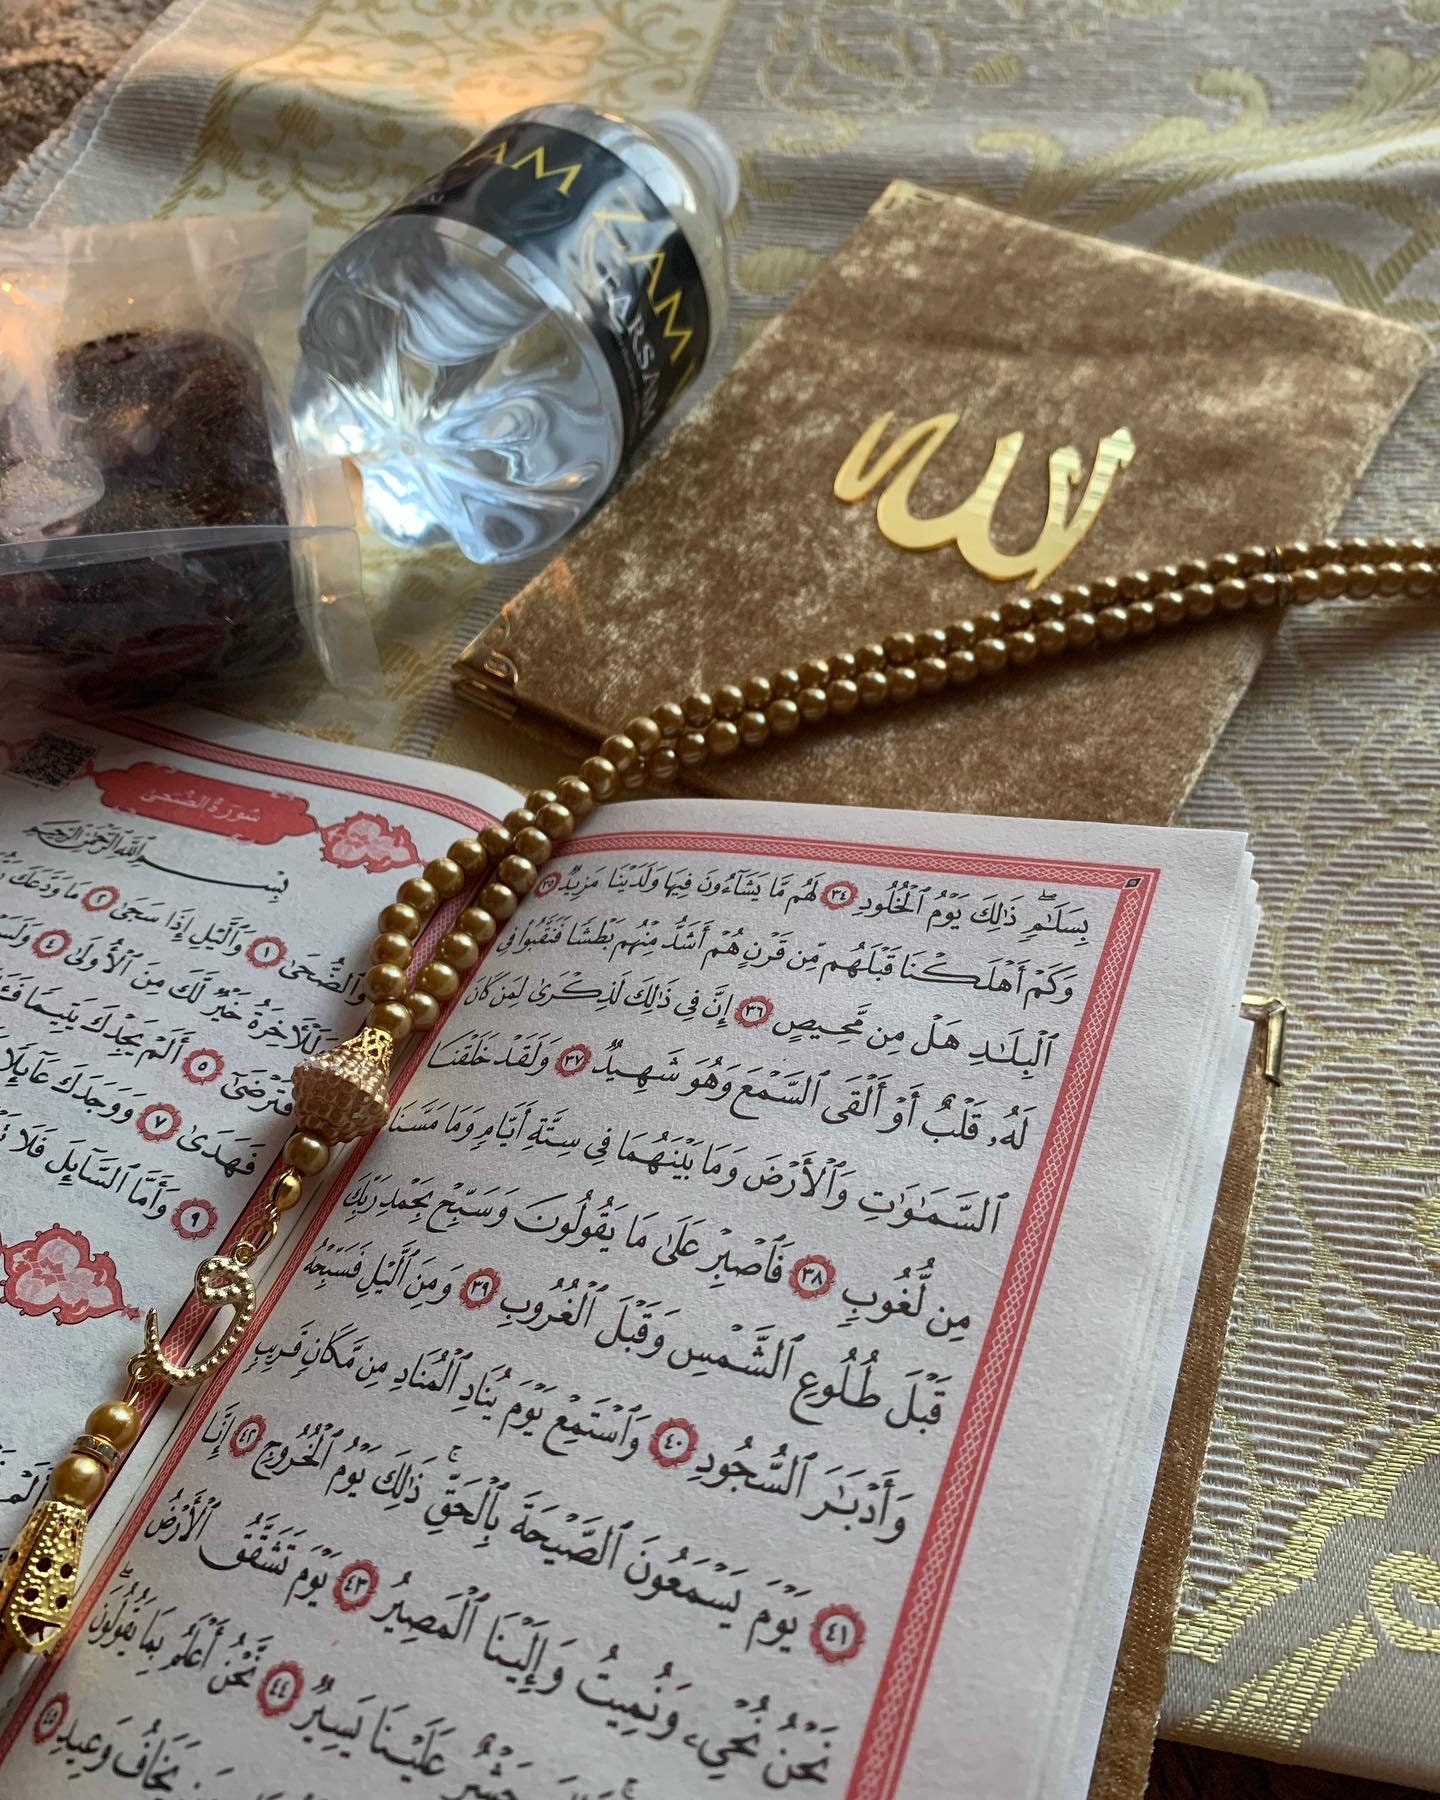 ZAM ZAM
الله
بِسَلَٰمٍۖ ذَٰلِكَ يَوْمُ ٱلْخُلُودِ ٣٤ لَهُم مَّا يَشَآءُونَ فِيهَا وَلَدَيْنَا مَزِيدٌ ٣٥
وَكَمْ أَهْلَكْنَا قَبْلَهُم مِّن قَرْنٍ هُمْ أَشَدُّ مِنْهُم بَطْشًا فَنَقَّبُوا۟ فِى
ٱلْبِلَٰدِ هَلْ مِن مَّحِيصٍ ٣٦ إِنَّ فِى ذَٰلِكَ لَذِكْرَىٰ لِمَن كَانَ
لَهُۥ قَلْبٌ أَوْ أَلْقَى ٱلسَّمْعَ وَهُوَ شَهِيدٌ ٣٧ وَلَقَدْ خَلَقْنَا
ٱلسَّمَٰوَٰتِ وَٱلْأَرْضَ وَمَا بَيْنَهُمَا فِى سِتَّةِ أَيَّامٍ وَمَا مَسَّنَا
مِن لُّغُوبٍ ٣٨ فَٱصْبِرْ عَلَىٰ مَا يَقُولُونَ وَسَبِّحْ بِحَمْدِ رَبِّكَ
قَبْلَ طُلُوعِ ٱلشَّمْسِ وَقَبْلَ ٱلْغُرُوبِ ٣٩ وَمِنَ ٱلَّيْلِ فَسَبِّحْهُ
وَأَدْبَٰرَ ٱلسُّجُودِ ٤٠ وَٱسْتَمِعْ يَوْمَ يُنَادِ ٱلْمُنَادِ مِن مَّكَانٍ قَرِيبٍ
٤١ يَوْمَ يَسْمَعُونَ ٱلصَّيْحَةَ بِٱلْحَقِّۚ ذَٰلِكَ يَوْمُ ٱلْخُرُوجِ ٤٢ إِنَّا
نَحْنُ نُحْىِۦ وَنُمِيتُ وَإِلَيْنَا ٱلْمَصِيرُ ٤٣ يَوْمَ تَشَقَّقُ ٱلْأَرْضُ
حَشْرٌ عَلَيْنَا يَسِيرٌ ٤٤ نَّحْنُ أَعْلَمُ بِمَا يَقُولُونَۖ
يَخَافُ وَعِيدِ ٤٥
سُورَةُ الضُّحَىٰ
بِسْمِ ٱللَّهِ ٱلرَّحْمَٰنِ ٱلرَّحِيمِ
وَٱلضُّحَىٰ ١ وَٱلَّيْلِ إِذَا سَجَىٰ ٢ مَا وَدَّعَكَ
وَلَلْـَٔاخِرَةُ خَيْرٌ لَّكَ مِنَ ٱلْأُولَىٰ ٤
فَتَرْضَىٰٓ ٥ أَلَمْ يَجِدْكَ يَتِيمًا
فَهَدَىٰ ٧ وَوَجَدَكَ عَآئِلًا
٩ وَأَمَّا ٱلسَّآئِلَ فَلَا